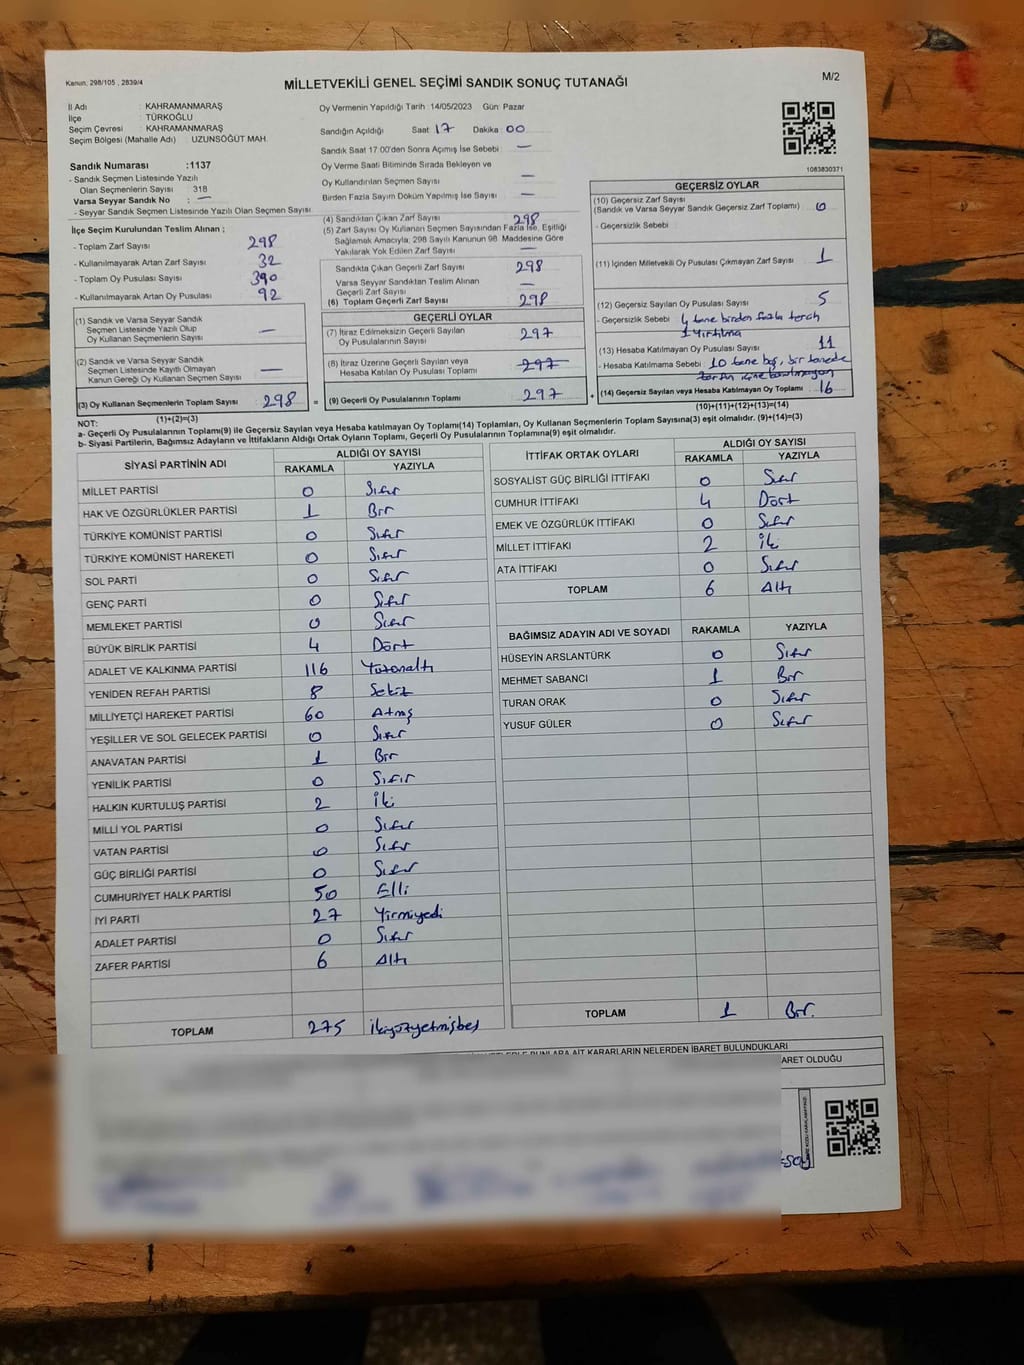 Kanun; 298/105 , 2839/4
MİLLETVEKİLİ GENEL SEÇİMİ SANDIK SONUÇ TUTANAĞI
M/2
İl Adı : KAHRAMANMARAŞ
İlçe : TÜRKOĞLU
Seçim Çevresi : KAHRAMANMARAŞ
Seçim Bölgesi (Mahalle Adı) : UZUNSÖĞÜT MAH.
Oy Vermenin Yapıldığı Tarih :14/05/2023 Gün: Pazar
Sandığın Açıldığı Saat 17 Dakika 00
Sandık Saat 17.00'den Sonra Açımış İse Sebebi: —
Oy Verme Saati Bitiminde Sırada Bekleyen ve
Oy Kullandırılan Seçmen Sayısı —
Birden Fazla Sayım Döküm Yapılmış İse Sayısı —
Sandık Numarası :1137
- Sandık Seçmen Listesinde Yazılı
Olan Seçmenlerin Sayısı : 318
Varsa Seyyar Sandık No : —
- Seyyar Sandık Seçmen Listesinde Yazılı Olan Seçmen Sayısı
İlçe Seçim Kurulundan Teslim Alınan ;
- Toplam Zarf Sayısı 298
- Kullanılmayarak Artan Zarf Sayısı 32
- Toplam Oy Pusulası Sayısı 390
- Kullanılmayarak Artan Oy Pusulası 92
(1) Sandık ve Varsa Seyyar Sandık
Seçmen Listesinde Yazılı Olup
Oy Kullanan Seçmenlerin Sayısı —
(2) Sandık ve Varsa Seyyar Sandık
Seçmen Listesinde Kayıtlı Olmayan
Kanun Gereği Oy Kullanan Seçmen Sayısı —
(3) Oy Kullanan Seçmenlerin Toplam Sayısı 298 =
(1)+(2)=(3)
(4) Sandıktan Çıkan Zarf Sayısı 298
(5) Zarf Sayısı Oy Kullanan Seçmen Sayısından Fazla İse, Eşitliği
Sağlamak Amacıyla; 298 Sayılı Kanunun 98. Maddesine Göre
Yakılarak Yok Edilen Zarf Sayısı —
Sandıkta Çıkan Geçerli Zarf Sayısı 298
Varsa Seyyar Sandıktan Teslim Alınan
Geçerli Zarf Sayısı —
(6) Toplam Geçerli Zarf Sayısı 298
GEÇERLİ OYLAR
(7) İtiraz Edilmeksizin Geçerli Sayılan
Oy Pusulalarının Sayısı 297
(8) İtiraz Üzerine Geçerli Sayılan veya
Hesaba Katılan Oy Pusulası Toplamı 297
(9) Geçerli Oy Pusulalarının Toplamı 297 +
1083830371
GEÇERSİZ OYLAR
(10) Geçersiz Zarf Sayısı
(Sandık ve Varsa Seyyar Sandık Geçersiz Zarf Toplamı) 0
- Geçersizlik Sebebi :
(11) İçinden Milletvekili Oy Pusulası Çıkmayan Zarf Sayısı 1
(12) Geçersiz Sayılan Oy Pusulası Sayısı 5
- Geçersizlik Sebebi : 4 tane birden fazla tercih
1 Yırtılma
(13) Hesaba Katılmayan Oy Pusulası Sayısı 11
- Hesaba Katılmama Sebebi : 10 tane boş, bir tanede
(14) Geçersiz Sayılan veya Hesaba Katılmayan Oy Toplamı 16
(10)+(11)+(12)+(13)=(14)
NOT:
a- Geçerli Oy Pusulaları(9) ile Geçersiz Sayılan veya Hesaba katılmayan Oy Toplamı(14) Toplamları, Oy Kullanan Seçmenlerin Toplam Sayısına(3) eşit olmalıdır. (9)+(14)=(3)
b- Siyasi Partilerin, Bağımsız Adayların ve İttifakların Aldığı Ortak Oyların Toplamı, Geçerli Oy Pusulalarının Toplamına(9) eşit olmalıdır.
SİYASİ PARTİNİN ADI ALDIĞI OY SAYISI
RAKAMLA YAZIYLA
MİLLET PARTİSİ 0 Sıfır
HAK VE ÖZGÜRLÜKLER PARTİSİ 1 Bir
TÜRKİYE KOMÜNİST PARTİSİ 0 Sıfır
TÜRKİYE KOMÜNİST HAREKETİ 0 Sıfır
SOL PARTİ 0 Sıfır
GENÇ PARTİ 0 Sıfır
MEMLEKET PARTİSİ 0 Sıfır
BÜYÜK BİRLİK PARTİSİ 4 Dört
ADALET VE KALKINMA PARTİSİ 116 Yüzonaltı
YENİDEN REFAH PARTİSİ 8 Sekiz
MİLLİYETÇİ HAREKET PARTİSİ 60 Atmış
YEŞİLLER VE SOL GELECEK PARTİSİ 0 Sıfır
ANAVATAN PARTİSİ 1 Bir
YENİLİK PARTİSİ 0 Sıfır
HALKIN KURTULUŞ PARTİSİ 2 İki
MİLLİ YOL PARTİSİ 0 Sıfır
VATAN PARTİSİ 0 Sıfır
GÜÇ BİRLİĞİ PARTİSİ 0 Sıfır
CUMHURİYET HALK PARTİSİ 50 Elli
İYİ PARTİ 27 Yirmiyedi
ADALET PARTİSİ 0 Sıfır
ZAFER PARTİSİ 6 Altı
TOPLAM 275 ikiyüzyetmişbeş
İTTİFAK ORTAK OYLARI ALDIĞI OY SAYISI
RAKAMLA YAZIYLA
SOSYALİST GÜÇ BİRLİĞİ İTTİFAKI 0 Sıfır
CUMHUR İTTİFAKI 4 Dört
EMEK VE ÖZGÜRLÜK İTTİFAKI 0 Sıfır
MİLLET İTTİFAKI 2 İki
ATA İTTİFAKI 0 Sıfır
TOPLAM 6 Altı
BAĞIMSIZ ADAYIN ADI VE SOYADI RAKAMLA YAZIYLA
HÜSEYİN ARSLANTÜRK 0 Sıfır
MEHMET SABANCI 1 Bir
TURAN ORAK 0 Sıfır
YUSUF GÜLER 0 Sıfır
TOPLAM 1 Bir.
KARARLARIN NELERDEN İBARET BULUNDUKLARI
ARET OLDUĞU